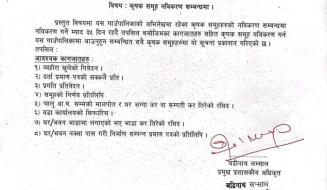 विषय : कृषक समूह नविकरण सम्बन्धमा ।
प्रस्तुत विषयमा यस गाउँपालिकाको अभिलेखमा रहेका कृषक समूहहरुको नविकरण सम्बन्धमा
नविकरण गर्ने म्याद ३५ दिन राहदै तपसिल बमोजिमका कागजातहरु सहित कृषक समूह नविकरण गर्न
यस गाउँपालिकामा आउनुहुन सम्बन्धित सबै कृषक समूहहरुमा यो सूचना प्रकाशन गरिएको छ ।
तपसिल :
आवश्यक कागजातहरु
१) व्यहोरा खुलेको निवेदन ।
२) दर्ता प्रमाण पत्रको सक्कलै प्रति ।
३) प्रगति प्रतिवेदन ।
४) समूहको निर्णय प्रतिलिपि
५) चालु आ.व. सम्मको मालपोत र घर जग्गा कर वा सम्पती कर तिरेको रसिद ।
६) वडा कार्यालयको सिफारिस ।
७) घर/भवन भाडामा लगाएको भए भाडा कर तिरेको रसिद ।
८) घर/भवन नक्सा पास गरी निर्माण सम्पन्न प्रमाण पत्रको प्रतिलिपि ।
बद्रीनाथ लम्साल
प्रमुख प्रशासकीय अधिकृत
बद्रिनाथ लम्साल